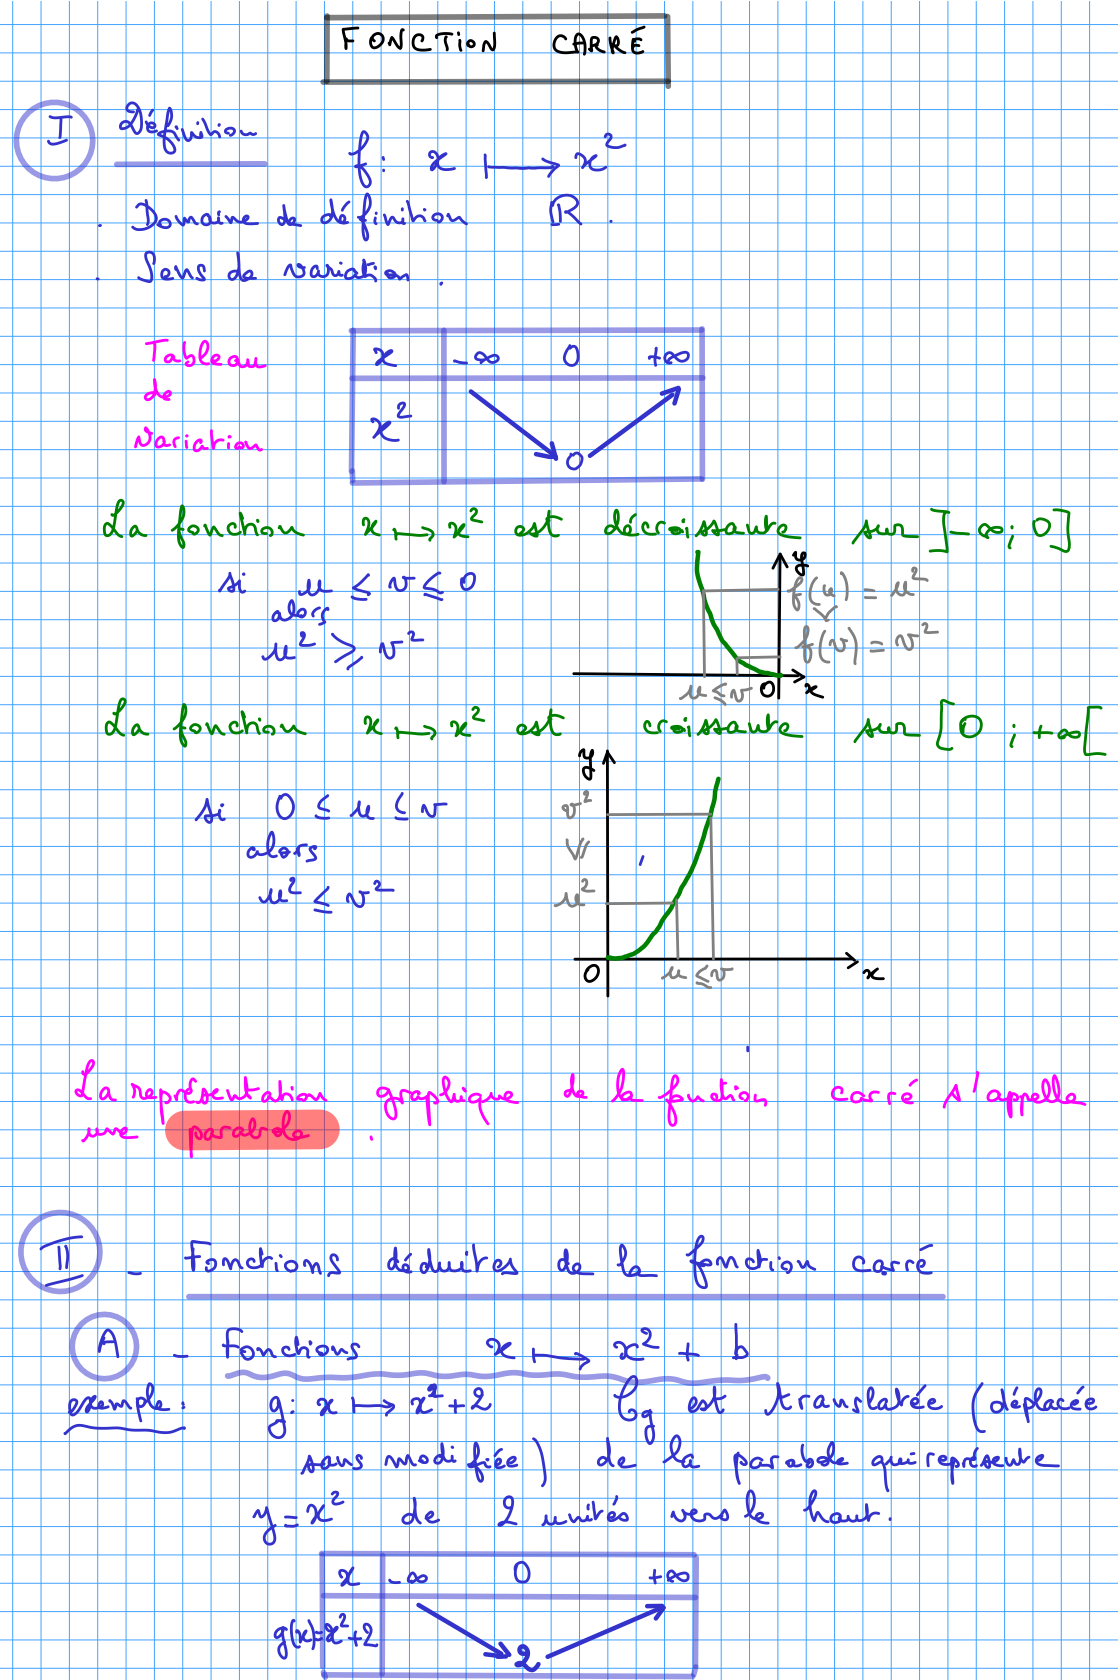 FONCTION CARRÉ
I Définition
f : x ⟼ x²
. Domaine de définition ℝ .
. Sens de variation .
Tableau
de
variation
x -∞ 0 +∞
x² 0
La fonction x ⟼ x² est décroissante sur ]-∞; 0]
si u ≤ v ≤ 0
alors
u² ⩾ v²
y
f(u) = u²
∨
f(v) = v²
u ≤ v 0 x
La fonction x ⟼ x² est croissante sur [0 ; +∞[
si 0 ≤ u ≤ v
alors
u² ≤ v²
y
v²
u²
0 u ≤ v x
La représentation graphique de la fonction carré s'appelle
une parabole .
II - Fonctions déduites de la fonction carré
A - Fonctions x ⟼ x² + b
exemple : g : x ⟼ x² + 2 Cg est translatée (déplacée
sans modifiée) de la parabole qui représente
y = x² de 2 unités vers le haut.
x -∞ 0 +∞
g(x)=x²+2 2